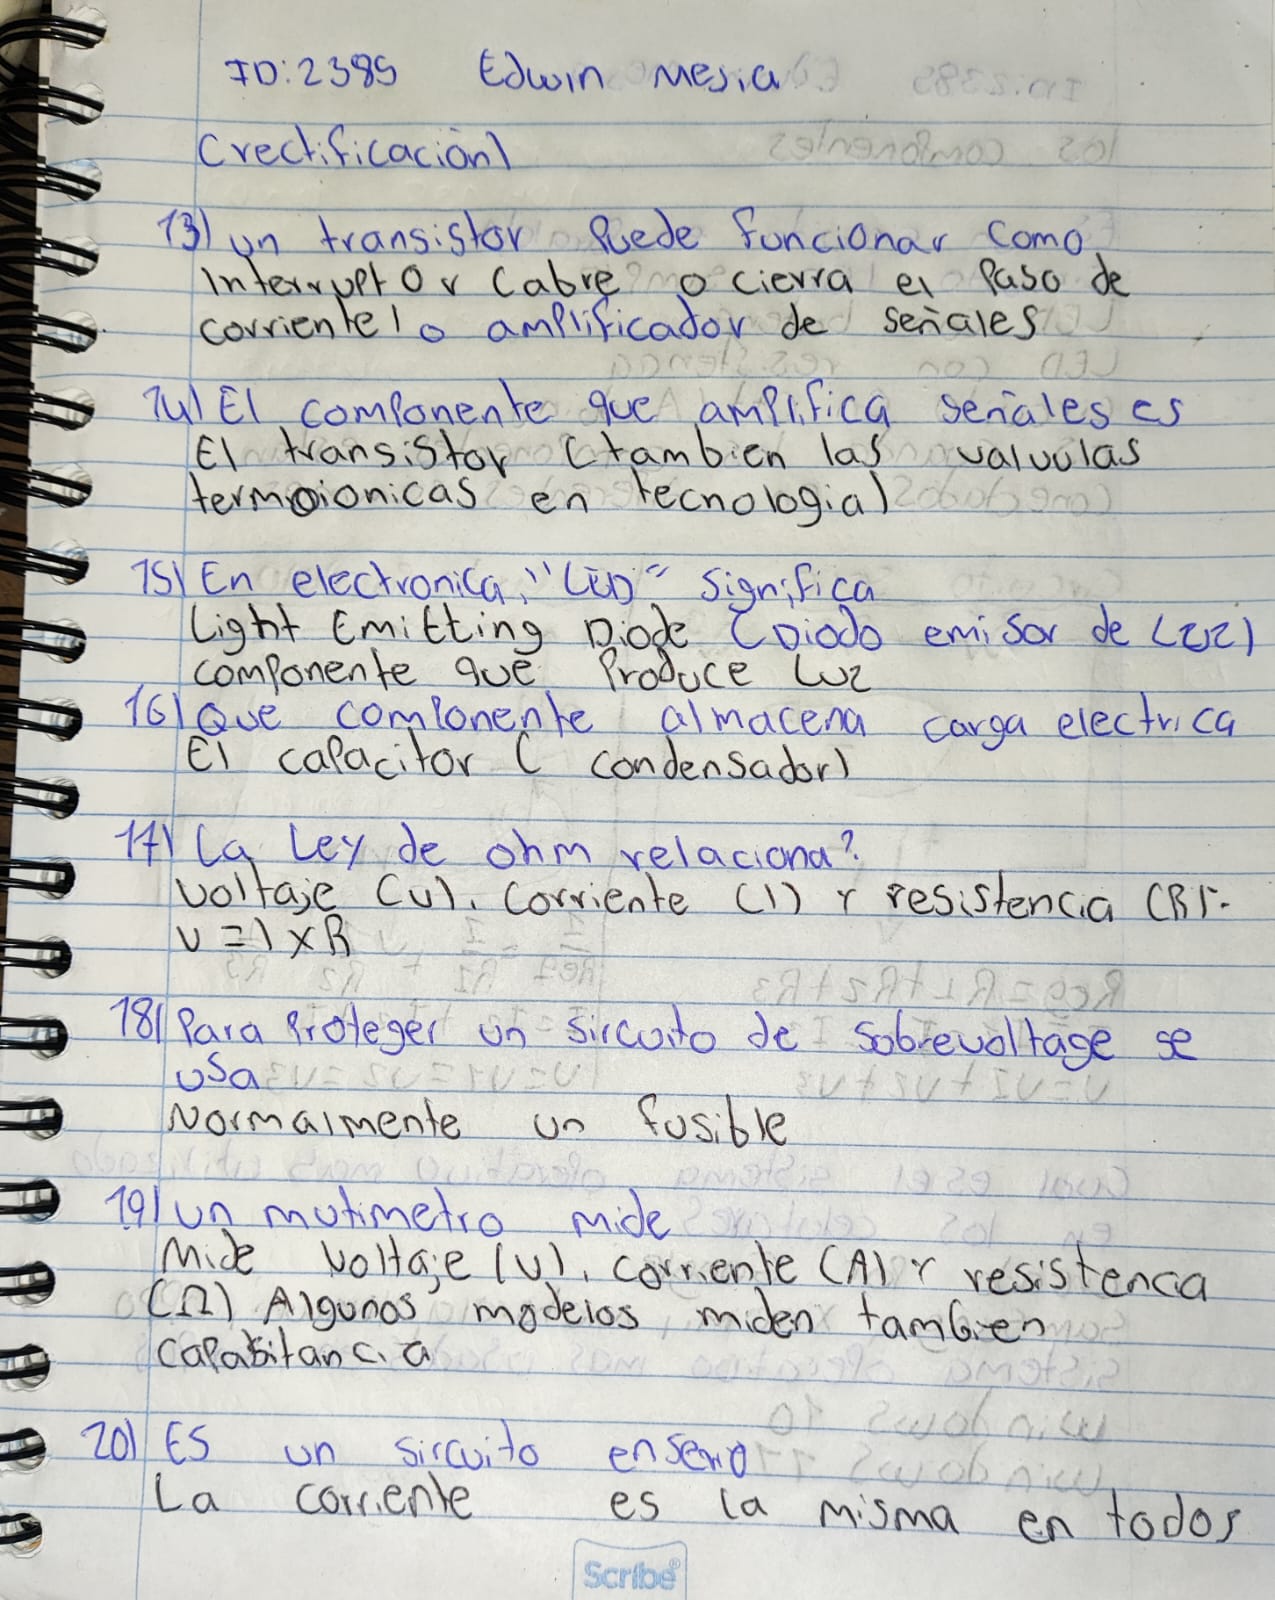 ID:2389 Edwin Mesia
(rectificación)
13) un transistor Puede funcionar Como
Interruptor (abre o cierra el Paso de
corriente) o amplificador de señales
14) El componente que amplifica señales es
El transistor (tambien las valvulas
termoionicas en tecnologia)
15) En electronica, "LED" significa
Light Emitting Diode (Diodo emisor de Luz)
componente que Produce Luz
16) Que componente almacena carga electrica
El capacitor ( condensador)
17) La Ley de ohm relaciona?
voltaje (v), Corriente (I) y resistencia (R).
V = I x R
18) Para Proteger un sircuito de sobrevoltage se
usa
Normalmente un fusible
19) un mutimetro mide
Mide voltaje (v), corriente (A) y resistencia
(Ω) Algunos modelos miden tambien
capabitancia
20) Es un sircuito enserio
La corriente es la misma en todos
Scribe®